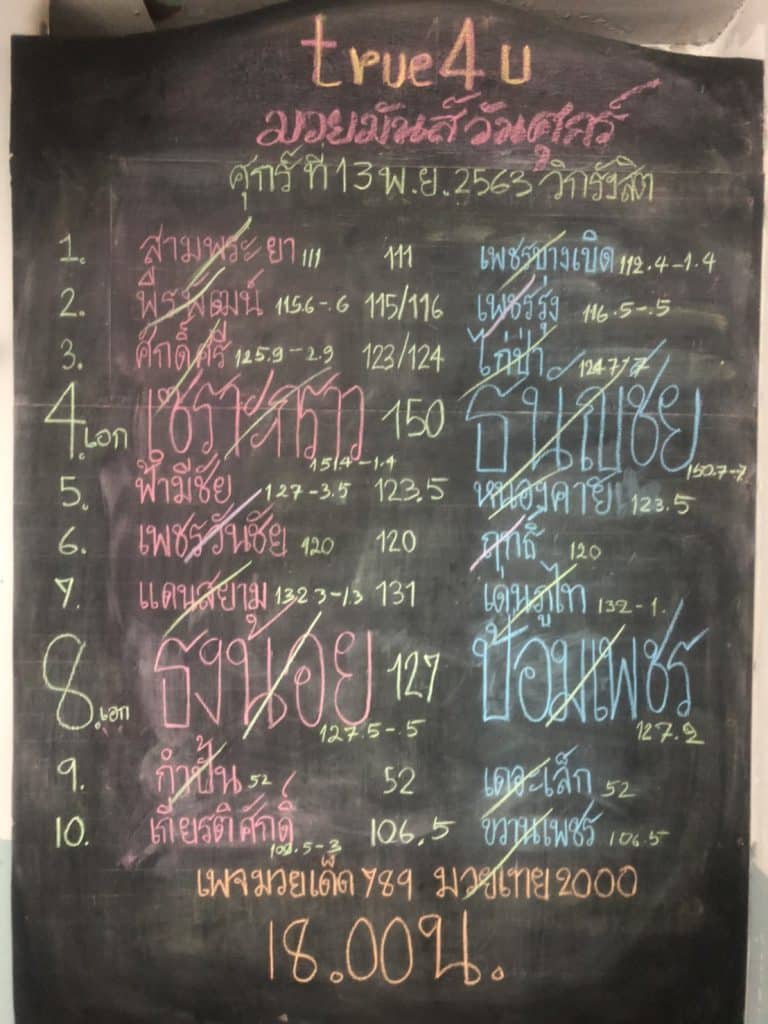 true4u
มวยมันส์วันศุกร์
ศุกร์ ที่ 13 พ.ย. 2563 วิกรังสิต
1. สามพระยา 111 111 เพชรบางเบิด 112.4-1.4
2. พีรพัฒน์ 115.6-.6 115/116 เพชรรุ่ง 116.5-.5
3. ศักดิ์ศรี 125.9-2.9 123/124 ไก่ป่า 124.7/7
4.เอก 151.4-1.4 150 ธันญชัย 150.7-7
5. ฟ้ามีชัย 127-3.5 123.5 หนองคาย 123.5
6. เพชรวันชัย 120 120 ฤทธิ์ 120
7. แดนสยาม 132.3-1.3 131 เด่นภูไท 132-1.
8.เอก ธงน้อย 127.5-.5 127 ป้อมเพชร 127.2
9. กำปั้น 52 52 เดอะเล็ก 52
10. เกียรติศักดิ์ 106.5 ขวานเพชร 106.5
เพจมวยเด็ด789 มวยไทย2000
18.00น.